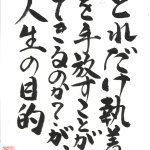 どれだけ執着
を手放すことが
できるのか？が、
人生の目的